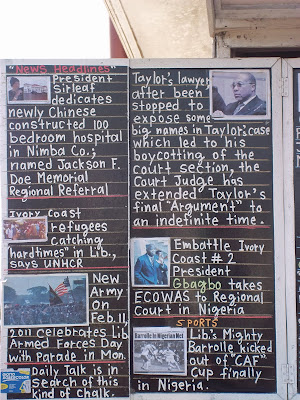 "News Headlines"
President
Sirleaf
dedicates
newly Chinese
constructed 100
bedroom hospital
in Nimba Co.;
named Jackson F.
Doe Memorial
Regional Referral
Ivory Coast
refugees
Catching
hardtimes" in Lib.,
says UNHCR
New
Army
On
Feb.11,
2011 celebrates Lib
Armed Forces Day
with Parade in Mon.
Daily Talk is in
Search of this
kind of Chalk.
Taylor's lawyer
after been
stopped to
expose some
big names in Taylor's case
which led to his
boycotting of the
court section, the
Court Judge has
extended Taylor's
final "Argument" to
an indefinite time.
Embattle Ivory
Coast # 2
President
Gbagbo takes
ECOWAS to Regional
Court in Nigeria
SPORTS
Barrolle in Nigerian Net
Lib's Mighty
Barrolle kicked
out of "CAF"
Cup finally
in Nigeria.